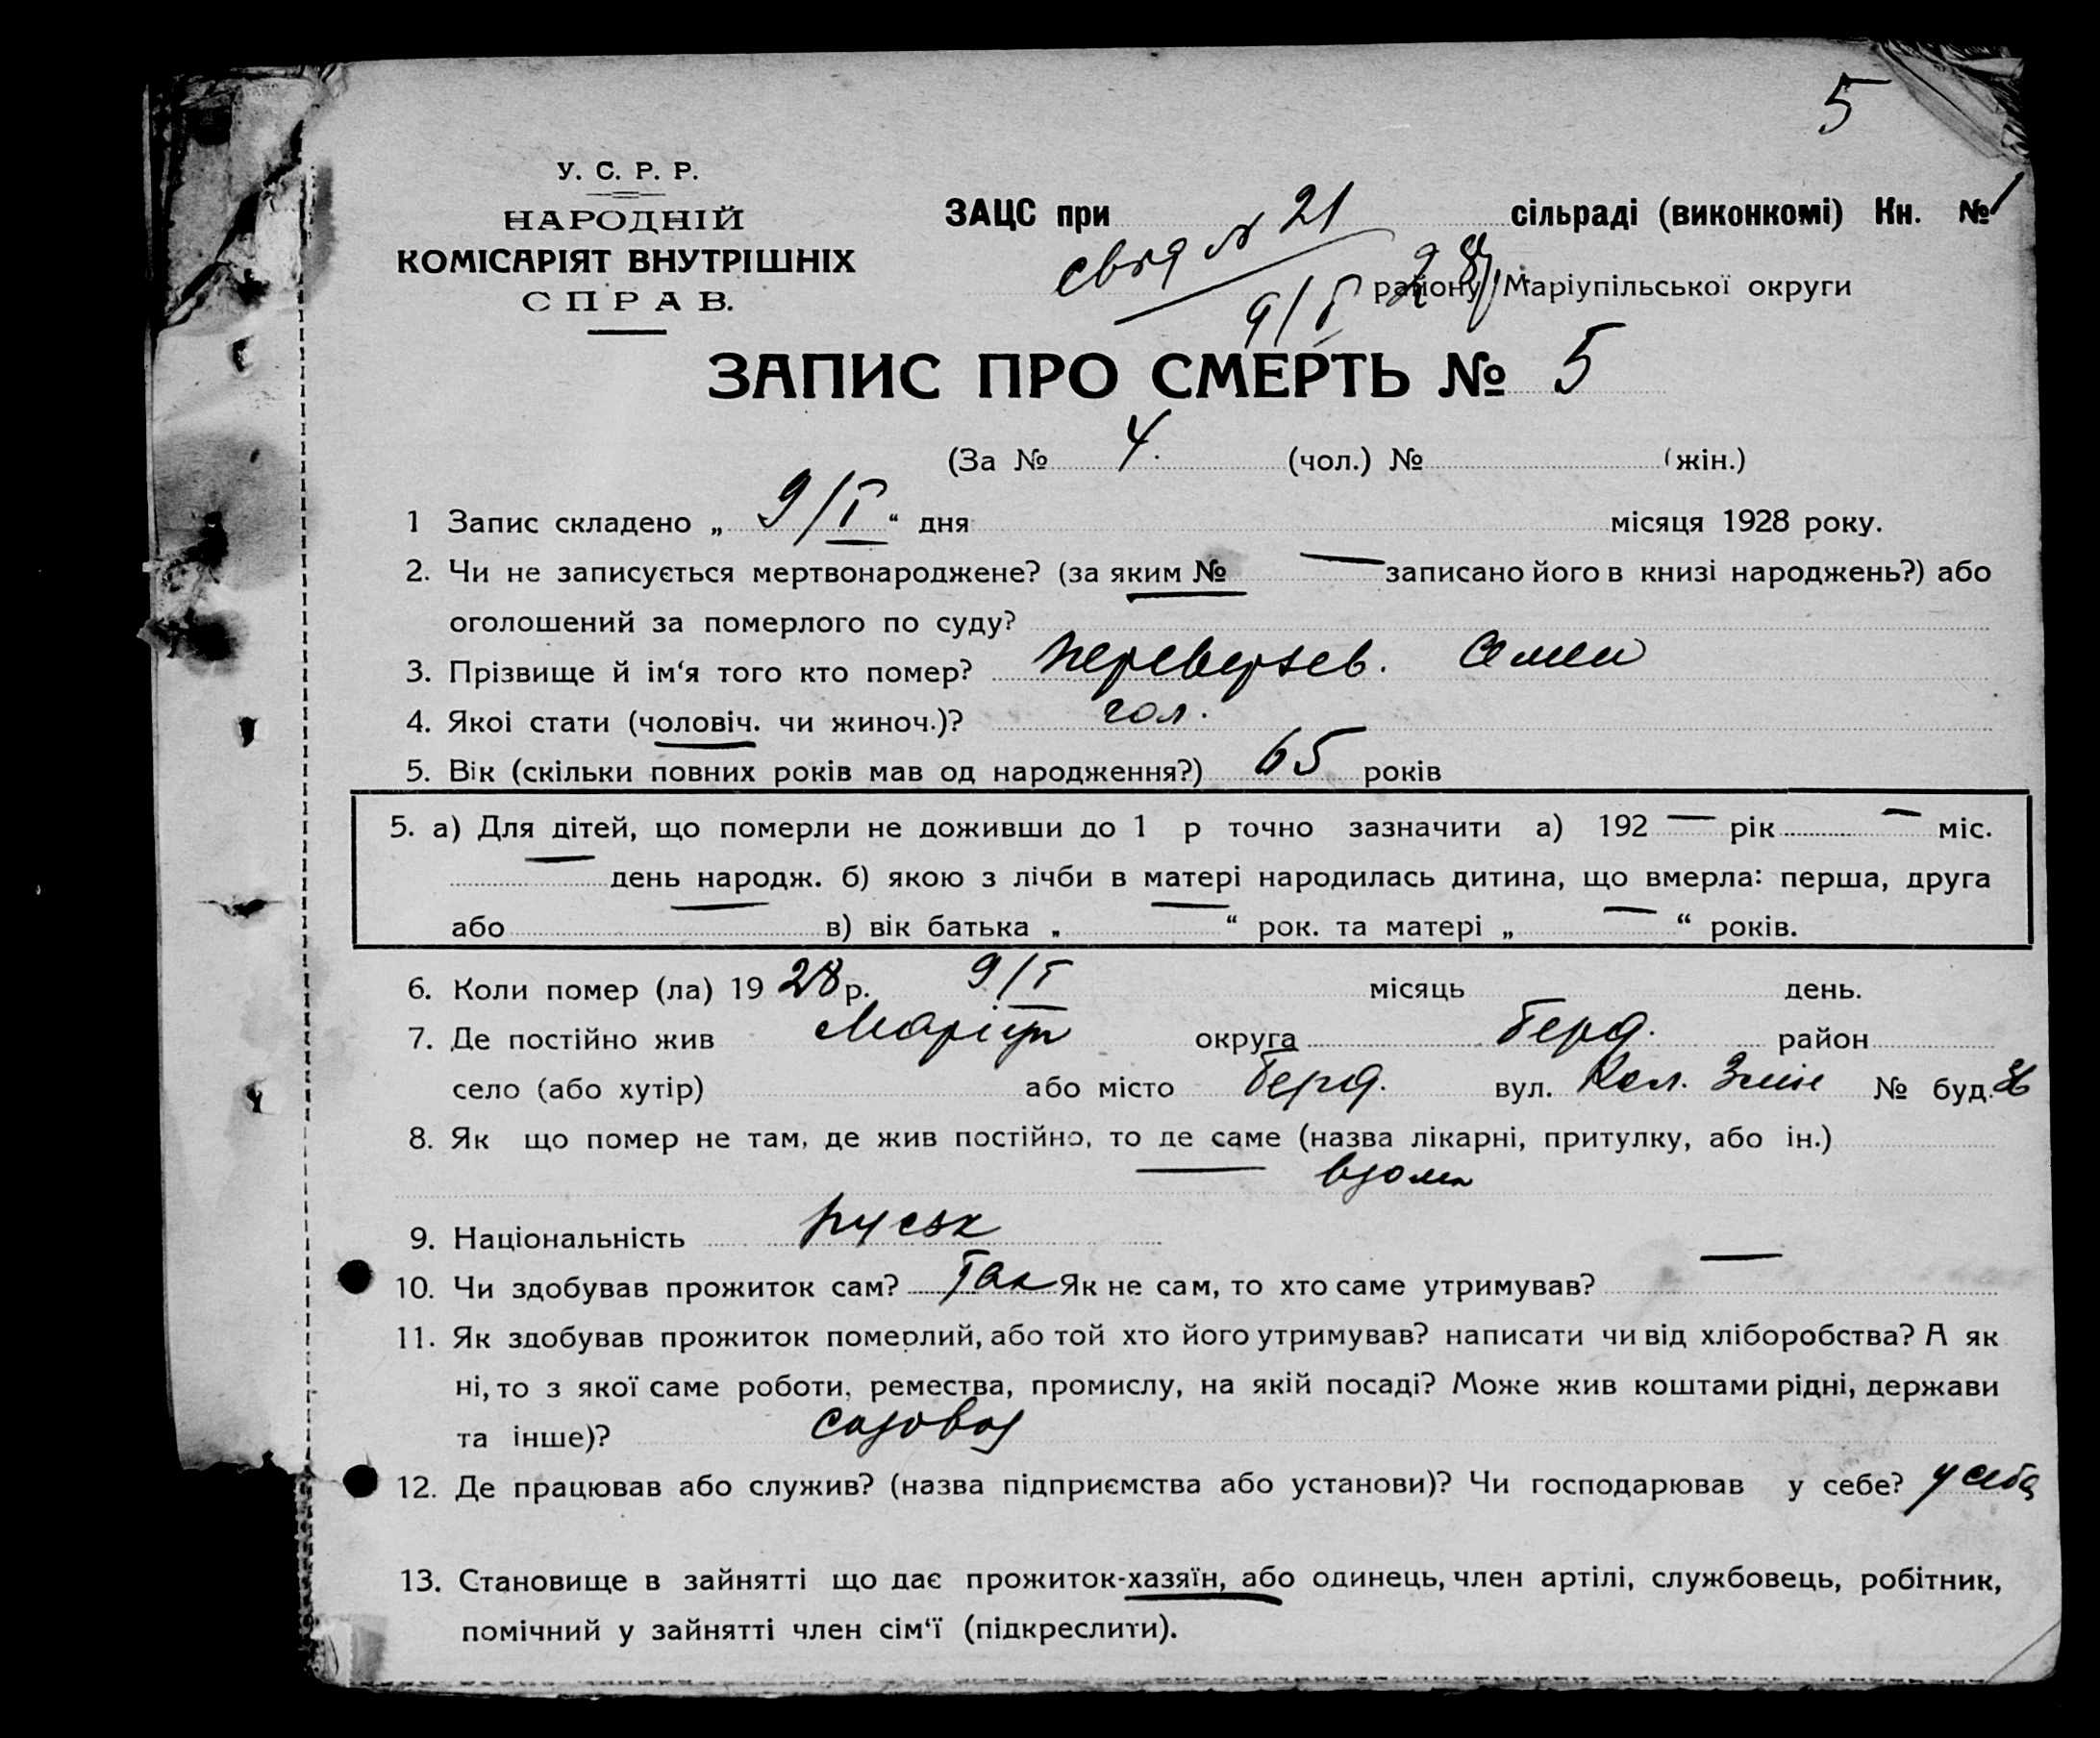 5
У. С. Р. Р.
НАРОДНІЙ
КОМІСАРІЯТ ВНУТРІШНІХ
СПРАВ.
ЗАЦС при сільраді (виконкомі) Кн. № 1
№ 21
району Маріупільської округи
9/I 28
ЗАПИС ПРО СМЕРТЬ № 5
(За № 4. (чол.) № (жін.)
1 Запис складено „ 9/I “ дня місяця 1928 року.
2. Чи не записується мертвонароджене? (за яким № — записано його в книзі народжень?) або
оголошений за померлого по суду?
3. Прізвище й ім‘я того кто помер? Переверзев. Семен
4. Якоі стати (чоловіч. чи жиноч.)? чол.
5. Вік (скільки повних років мав од народження?) 65 років
5. а) Для дітей, що померли не доживши до 1 р точно зазначити а) 192 — рік — міс.
— день народж. б) якою з лічби в матері народилась дитина, що вмерла: перша, друга
або — в) вік батька „ — “ рок. та матері „ — “ років.
6. Коли помер (ла) 19 28 р. 9/I місяць день.
7. Де постійно жив Маріуп округа Берд. район
село (або хутір) або місто Берд. вул. № буд. 36
8. Як що помер не там, де жив постійно, то де саме (назва лікарні, притулку, або ін.)
— вдома
9. Національність руськ
10. Чи здобував прожиток сам? Так Як не сам, то хто саме утримував? —
11. Як здобував прожиток померлий, або той хто його утримував? написати чи від хліборобства? А як
ні, то з якої саме роботи, ремества, промислу, на якій посаді? Може жив коштами рідні, держави
та інше)?
12. Де працював або служив? (назва підприємства або установи)? Чи господарював у себе? у себе
13. Становище в зайнятті що дає прожиток-хазяїн, або одинець, член артілі, службовець, робітник,
помічний у зайнятті член сім‘ї (підкреслити).